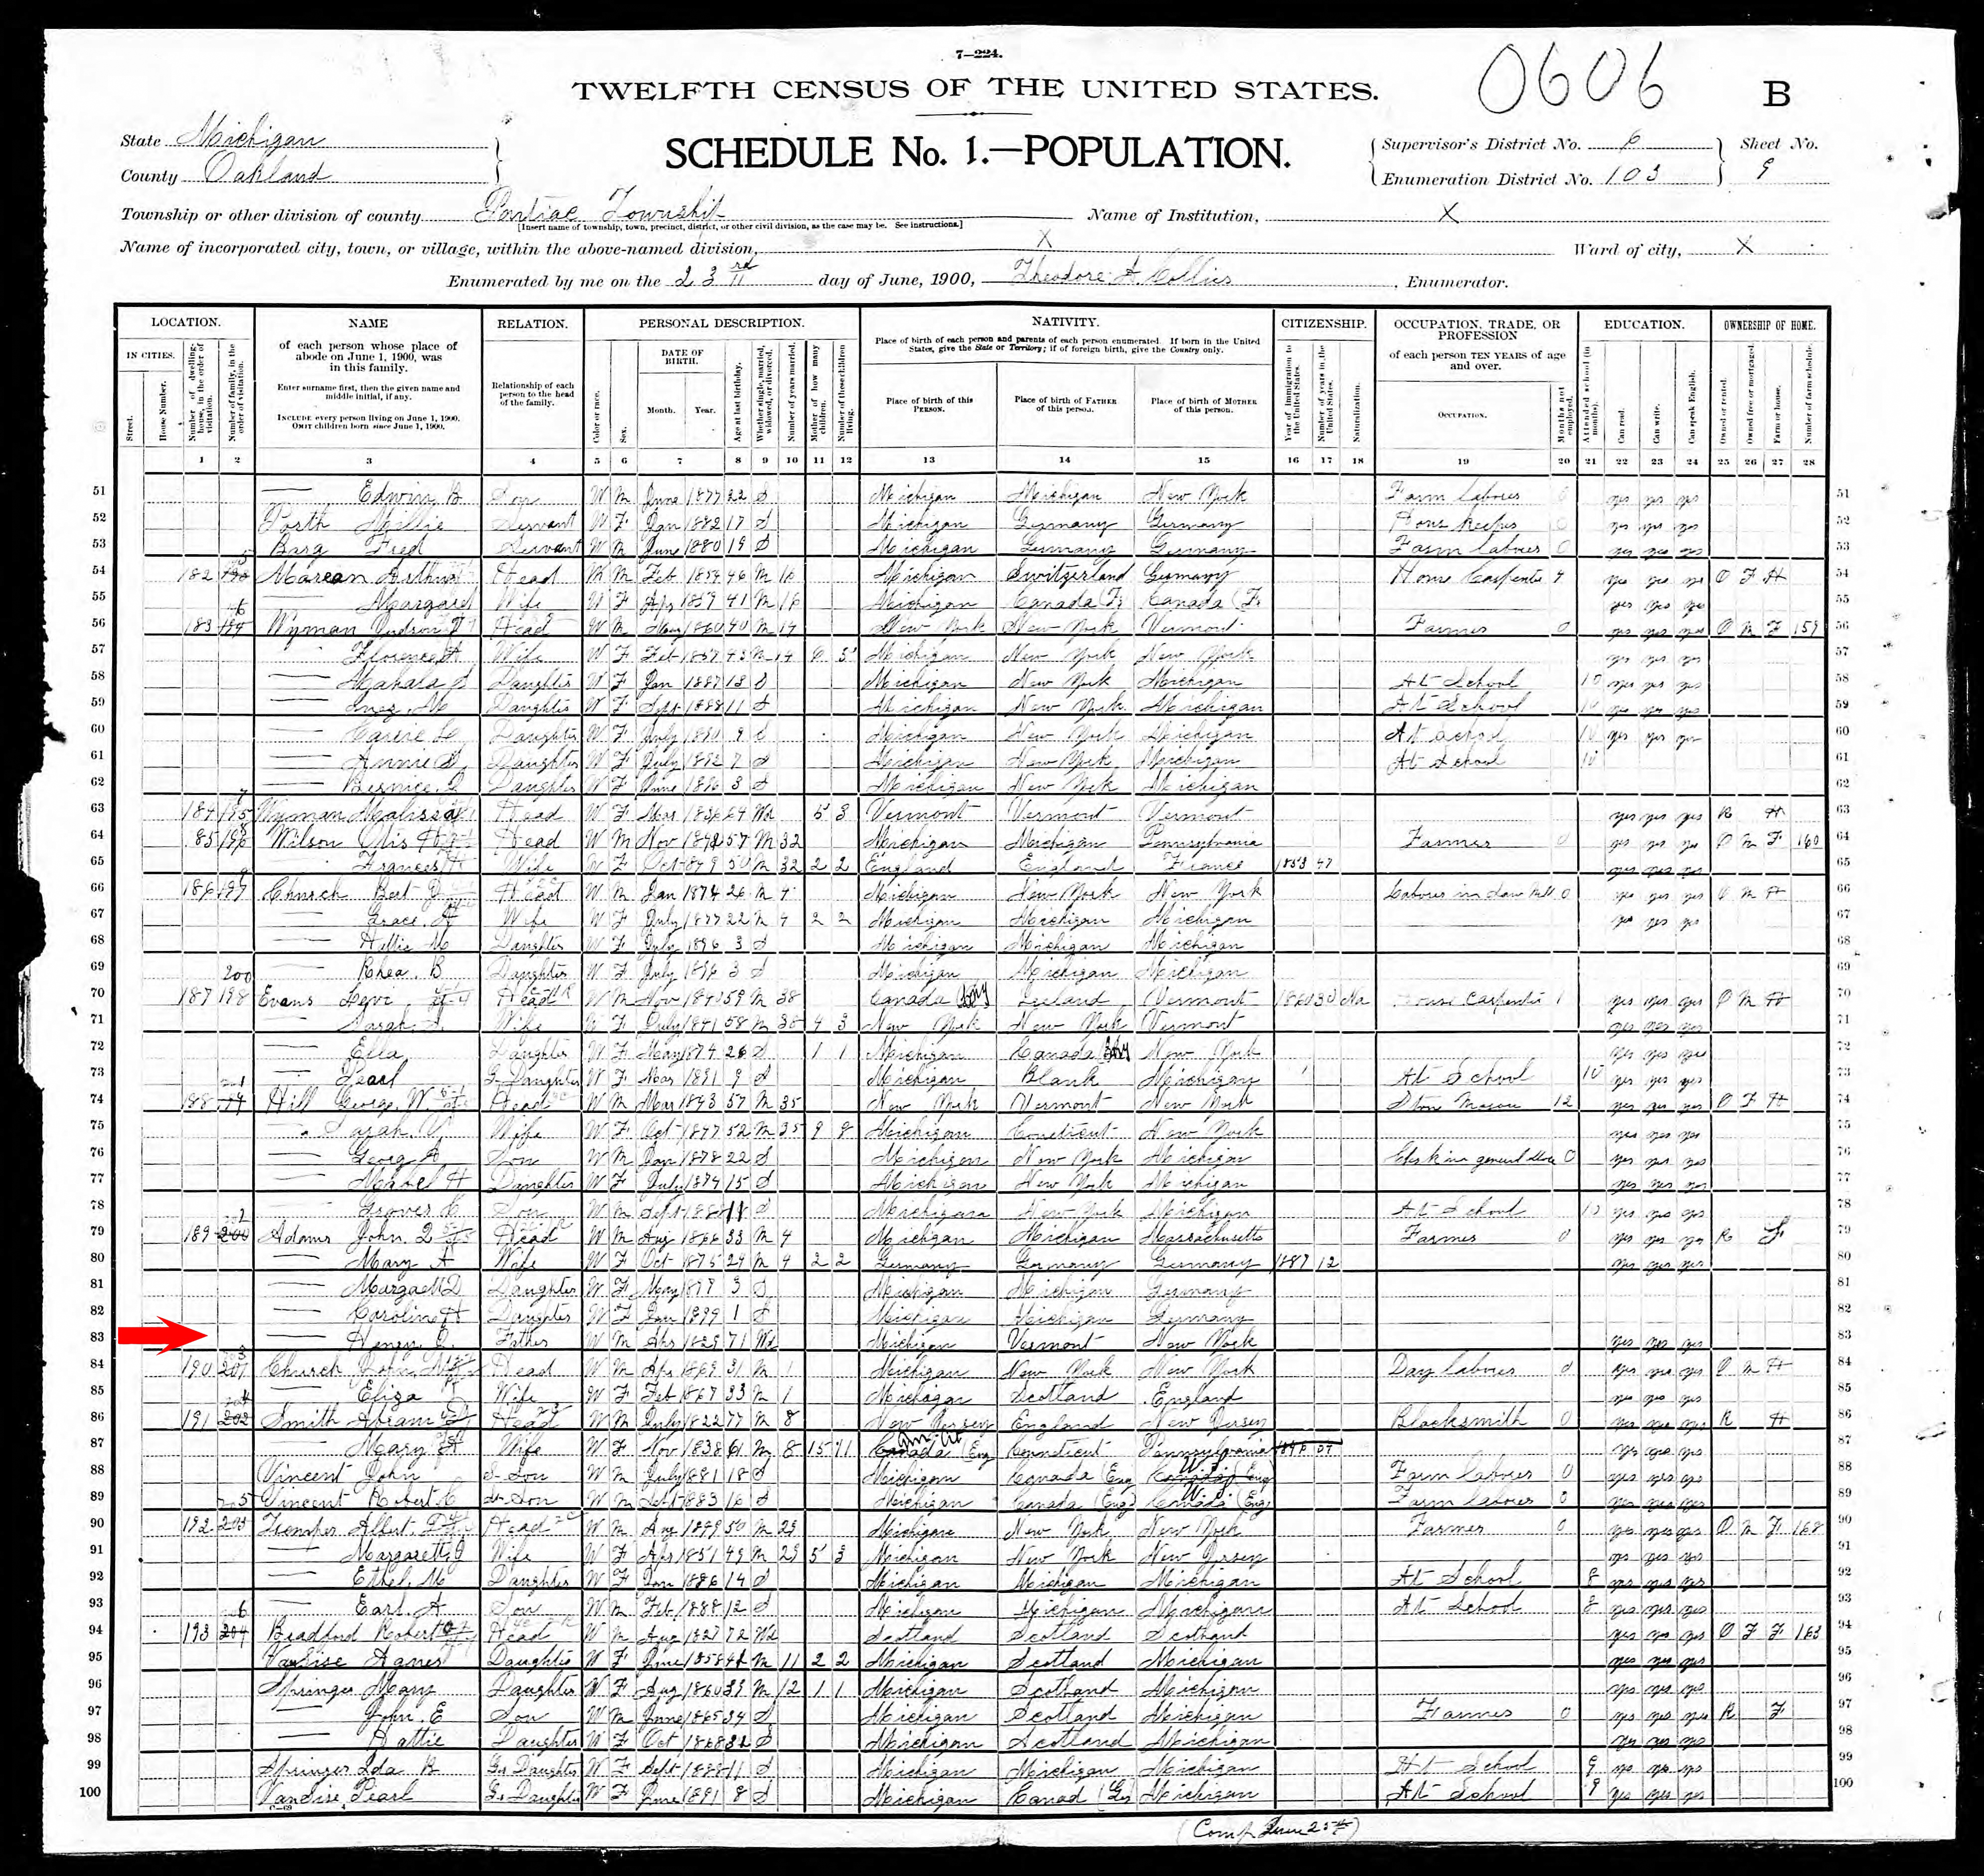 7—224.
0606
TWELFTH CENSUS OF THE UNITED STATES.
B
State Michigan
County Oakland
SCHEDULE No. 1.—POPULATION.
Supervisor's District No. 6
Enumeration District No. 103
Sheet No.
9
Township or other division of county Pontiac Township
[Insert name of township, town, precinct, district, or other civil division, as the case may be. See instructions.]
Name of Institution, X
Name of incorporated city, town, or village, within the above-named division, X
Ward of city, X
Enumerated by me on the 23rd day of June, 1900, Theodore A. Collins, Enumerator.
LOCATION. NAME RELATION. PERSONAL DESCRIPTION. NATIVITY. CITIZENSHIP. OCCUPATION, TRADE, OR PROFESSION EDUCATION. OWNERSHIP OF HOME.
IN CITIES. Street. House Number. Number of dwelling-house, in the order of visitation. Number of family, in the order of visitation.
of each person whose place of abode on June 1, 1900, was in this family.
Enter surname first, then the given name and middle initial, if any.
INCLUDE every person living on June 1, 1900. OMIT children born since June 1, 1900.
Relationship of each person to the head of the family.
Color or race. Sex. DATE OF BIRTH. Month. Year. Age at last birthday. Whether single, married, widowed, or divorced. Number of years married. Mother of how many children. Number of these children living.
Place of birth of each person and parents of each person enumerated. If born in the United States, give the State or Territory; if of foreign birth, give the Country only.
Place of birth of this PERSON. Place of birth of FATHER of this person. Place of birth of MOTHER of this person.
Year of immigration to the United States. Number of years in the United States. Naturalization.
of each person TEN YEARS of age and over.
OCCUPATION. Months not employed.
Attended school (in months). Can read. Can write. Can speak English. Owned or rented. Owned free or mortgaged. Farm or house. Number of farm schedule.
1 2 3 4 5 6 7 8 9 10 11 12 13 14 15 16 17 18 19 20 21 22 23 24 25 26 27 28
51 — Edwin B Son W M June 1877 22 S Michigan Michigan New York Farm labour 0 yes yes yes 51
52 Millie Servant W F Jan 1882 17 S Michigan Germany Germany House Keeper 0 yes yes yes 52
53 Barg Fred Servant W M June 1880 19 S Michigan Germany Germany Farm labour 0 yes yes yes 53
54 182 Arthur Head M M Feb 1854 46 M 16 Michigan Switzerland Germany House Carpenter 4 yes yes yes O F H 54
55 — Margaret Wife W F Apr 1859 41 M 16 Michigan Canada (Fr Canada (Fr yes yes yes 55
56 183 Wyman Judson Head W M May 1860 40 M 14 New York New York Vermont Farmer 0 yes yes yes O M F 159 56
57 Florence A Wife W F Feb 1857 43 M 14 6 5 Michigan New York New York yes yes yes 57
58 — Mahala Daughter W F Jan 1887 13 S Michigan New York Michigan At School 10 yes yes yes 58
59 — Inez M Daughter W F Sept 1888 11 S Michigan New York Michigan At School 10 yes yes yes 59
60 — Carrie Daughter W F July 1890 9 S Michigan New York Michigan At School 10 yes yes yes 60
61 — Annie Daughter W F July 1892 7 S Michigan New York Michigan At School 10 61
62 — Bernice Daughter W F June 1896 3 S Michigan New York Michigan 62
63 184 195 Wyman Malissa Head W F Mar 1836 64 Wd 5 3 Vermont Vermont Vermont yes yes yes R H 63
64 85 196 Wilson Otis H Head W M Nov 1842 57 M 32 Michigan Michigan Pennsylvania Farmer 0 yes yes yes O M F 160 64
65 Frances Wife W F Oct 1849 50 M 32 2 2 England England France 1853 47 yes yes yes 65
66 186 197 Church Bert Head W M Jan 1874 26 M 4 Michigan New York New York Labour in Saw Mill 0 yes yes yes O M H 66
67 — Grace Wife W F July 1877 22 M 4 2 2 Michigan Michigan Michigan yes yes yes 67
68 — M Daughter W F July 1896 3 S Michigan Michigan Michigan 68
69 — Rhea B Daughter W F July 1896 3 S Michigan Michigan Michigan 69
70 187 198 200 Evans Levi Head W M Nov 1840 59 M 38 Canada Ireland Vermont 1860 Na House Carpenter 1 yes yes yes O M H 70
71 — Sarah Wife W F July 1841 58 M 38 4 3 New York New York Vermont yes yes yes 71
72 — Ella Daughter W F May 1874 26 S 1 1 Michigan Canada New York yes yes yes 72
73 — Pearl G. Daughter W F Mar 1891 9 S Michigan Blank Michigan At School 10 yes yes yes 73
74 188 Hill George W. Head W M Mar 1843 57 M 35 New York Vermont New York Stone Mason 12 yes yes yes O F H 74
75 Sarah Wife W F Oct 1847 52 M 35 9 8 Michigan Conetticut New York yes yes yes 75
76 — Georg A Son W M Jan 1878 22 S Michigan New York Michigan Clerk in general store 0 yes yes yes 76
77 — Mabel H Daughter W F July 1884 15 S Michigan New York Michigan yes yes yes 77
78 — Grover C Son W M Sept 1888 11 S Michigan New York Michigan At School 10 yes yes yes 78
79 189 200 Adams John Q Head W M Aug 1866 33 M 4 Michigan Michigan Massachusetts Farmer 0 yes yes yes R F 79
80 — Mary A Wife W F Oct 1875 24 M 4 2 2 Germany Germany Germany 1887 12 yes yes yes 80
81 — Margaett D Daughter W F May 1897 3 S Michigan Michigan Germany 81
82 — Caroline H Daughter W F Jan 1899 1 S Michigan Michigan Germany 82
83 — Henry Father W M Apr 1829 71 Wd Michigan Vermont New York yes yes yes 83
84 190 201 Church John Head W M Apr 1869 31 M 1 Michigan New York New York Day labour 0 yes yes yes O M H 84
85 — Eliza Wife W F Feb 1867 33 M 1 Michigan Scotland England yes yes yes 85
86 191 202 Smith Abram Head W M July 1822 77 M 8 New Jersey England New Jersey Blacksmith 0 yes yes yes R H 86
87 — Mary Wife W F Nov 1838 61 M 8 15 11 Canada (Eng Conneticut Pennsylvania yes yes yes 87
88 Vincent John S-Son W M July 1881 18 S Michigan Canada (Eng Canada (Eng) Farm labour 0 yes yes yes 88
89 Vincent Robert C S-Son W M Sept 1883 16 S Michigan Canada (Eng) Canada (Eng) Farm labour 0 yes yes yes 89
90 192 203 Albert Head W M Aug 1849 50 M 29 Michigan New York New York Farmer 0 yes yes yes O M F 168 90
91 — Margarett Wife W F Apr 1851 49 M 29 5 3 Michigan New York New Jersey yes yes yes 91
92 — Ethel M Daughter W F Jan 1886 14 S Michigan Michigan Michigan At School 8 yes yes yes 92
93 — Earl A Son W M Feb 1888 12 S Michigan Michigan Michigan At School 8 yes yes yes 93
94 193 204 Bradford Robert Head W M Aug 1827 72 Wd Scotland Scotland Scotland yes yes yes O F F 163 94
95 Vansise Agnes Daughter W F June 1858 41 M 11 2 2 Michigan Scotland Michigan yes yes yes 95
96 Springer Mary Daughter W F Aug 1860 39 M 12 1 1 Michigan Scotland Michigan yes yes yes 96
97 — John E Son W M June 1865 34 S Michigan Scotland Michigan Farmer 0 yes yes yes R F 97
98 — Hattie Daughter W F Oct 1868 31 S Michigan Scotland Michigan yes yes yes 98
99 Springer Ida B G. Daughter W F Sept 1888 11 S Michigan Michigan Michigan At School 9 yes yes yes 99
100 Vansise Pearl G. Daughter W F June 1891 8 S Michigan Canad Michigan At School 9 yes yes yes 100
(Comp June 25th)